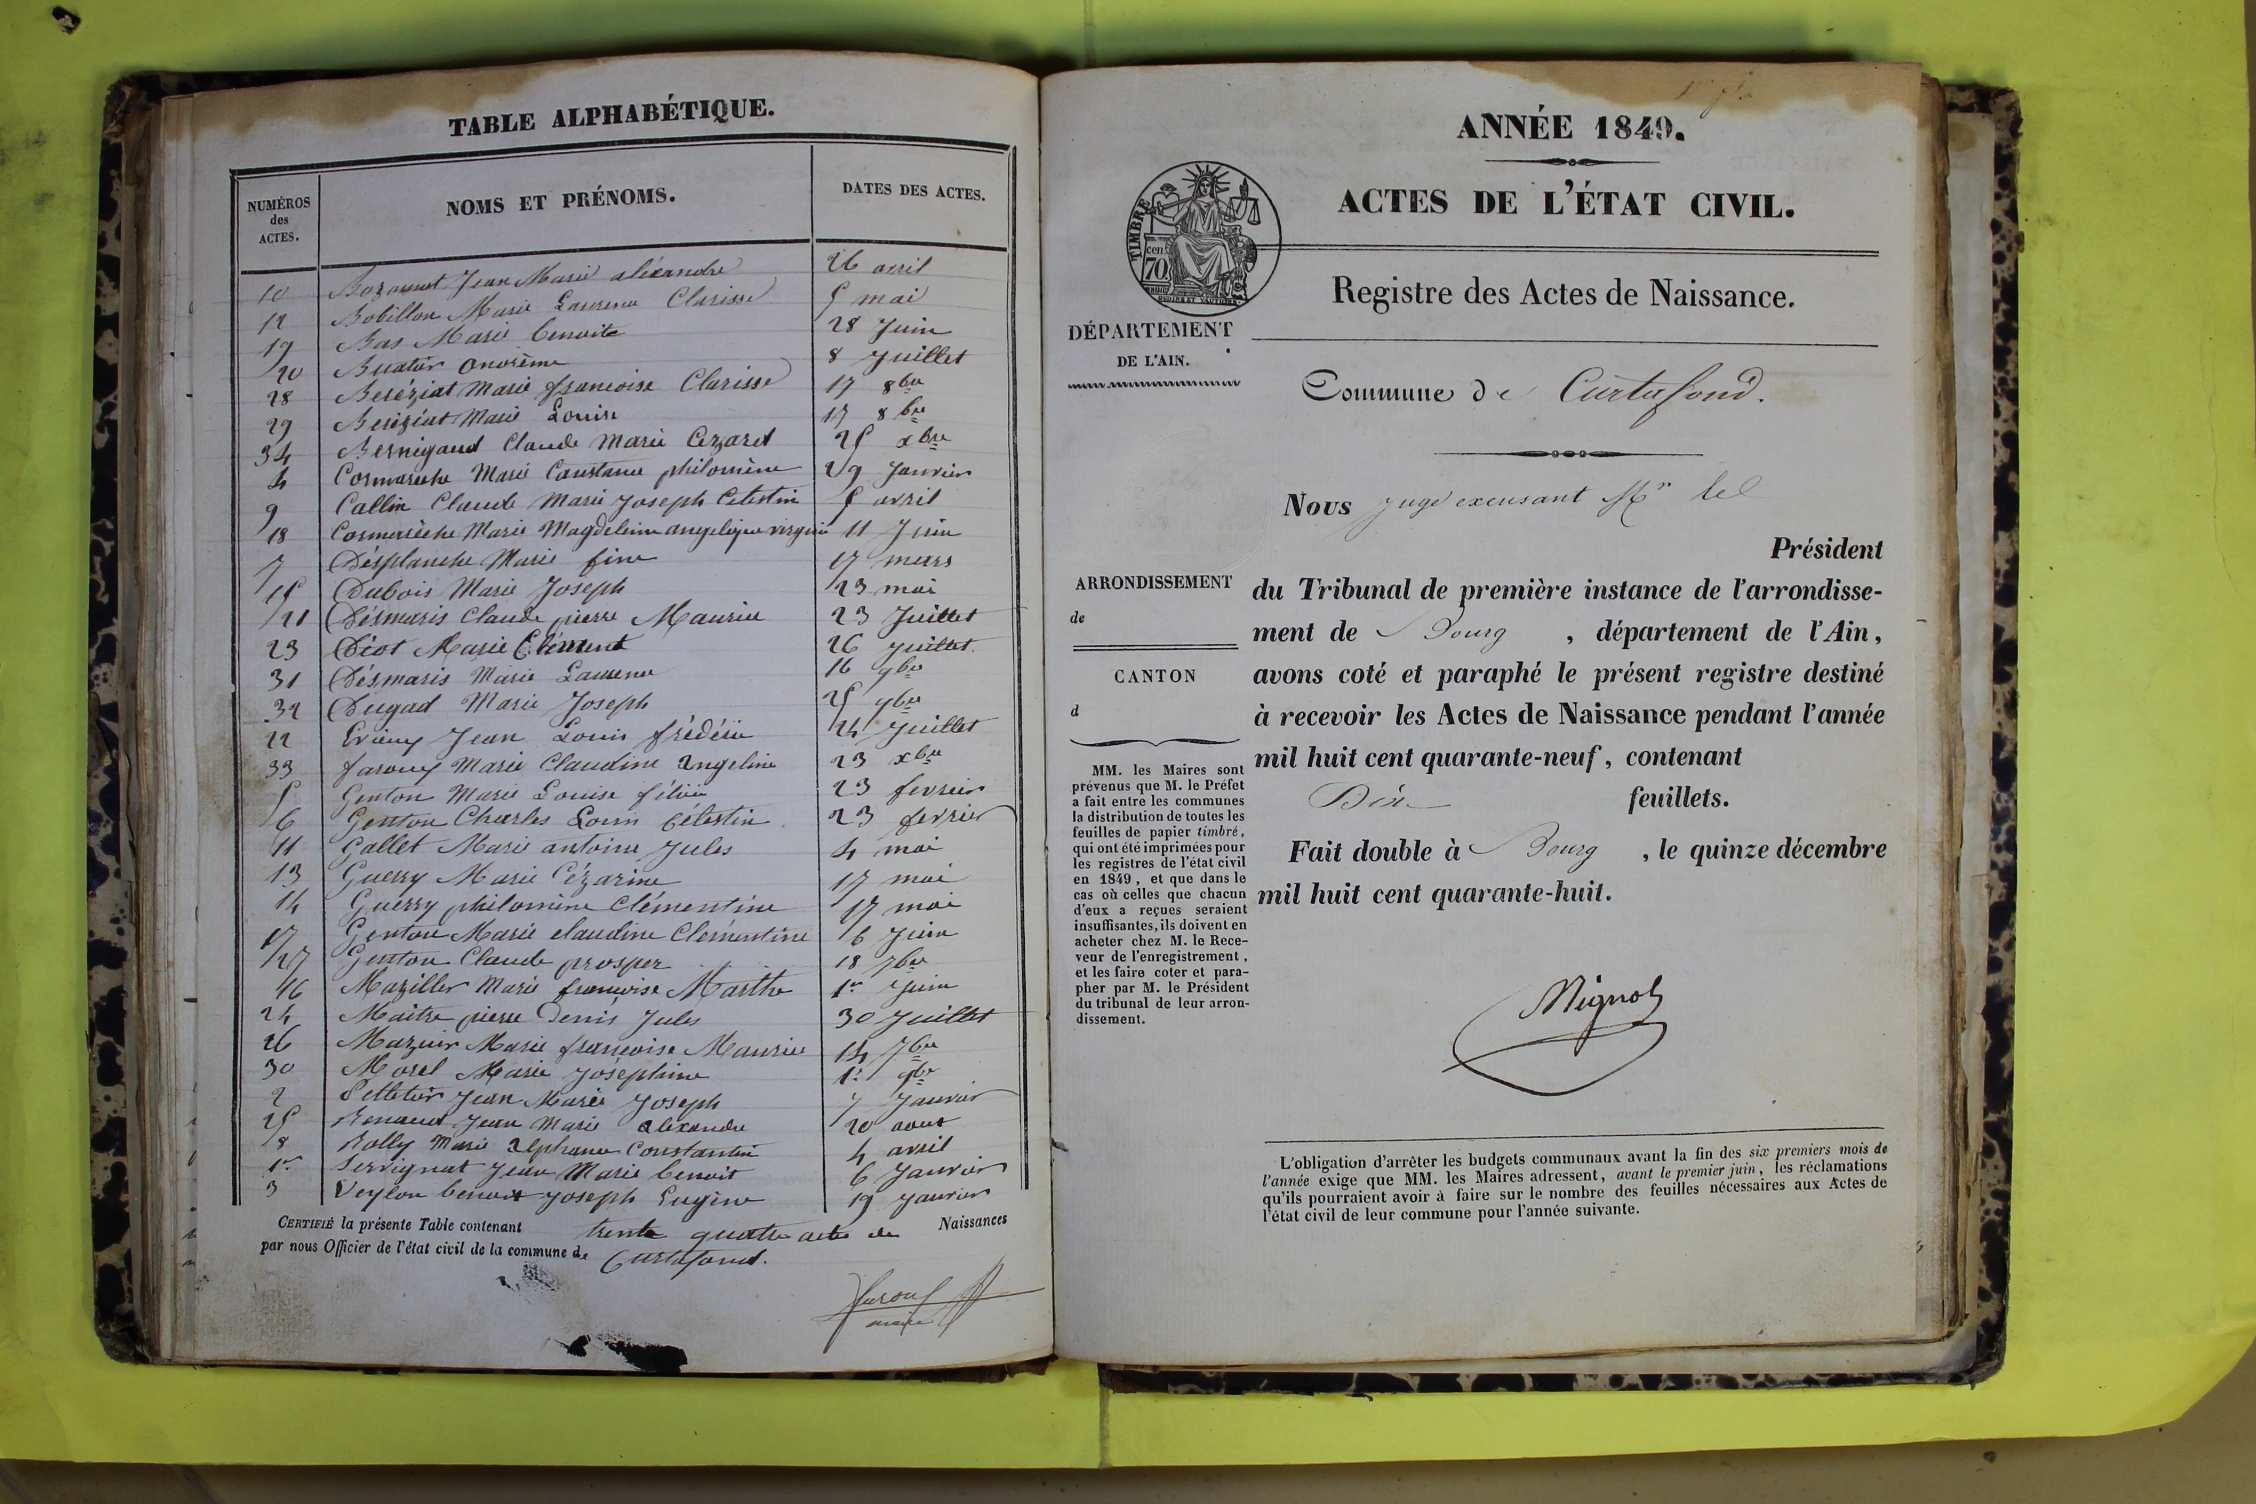 TABLE ALPHABÉTIQUE.
NUMÉROS des ACTES. NOMS ET PRÉNOMS. DATES DES ACTES.
10 Jean Marie aléxandre 26 avril
12 Bobillon Marie Laurence Clarisse 5 mai
19 Bas Marie benoite 28 Juin
20 Buatier onorine 8 Juillet
28 Beréziat Marie françoise Clarisse 17 8bre
29 Beréziat Marie Louise 17 8bre
34 Bernigaud Claude Marie Cezard 25 xbre
4 Cormarèche Marie Constance philomène 29 Janvier
9 Callin Claude Marie Joseph Célestin 5 avril
18 Cormarèche Marie Magdeleine angelique virginie 11 Juin
7 Désplanche Marie fine 17 mars
15 Dubois Marie Joseph 23 mai
21 Désmaris Claude pierre Maurice 23 Juillet
23 Diot Marie Clément 26 Juillet.
31 Désmaris Marie Laurence 16 9bre
32 Dugad Marie Joseph 25 9bre
22 Jean Louis frédéric 24 Juillet
33 farouy Marie Claudine angeline 23 xbre
5 Genton Marie Louise félicie 23 fevrier
6 Genton Charles Louis Célestin 23 fevrier
11 Gallet Marie antoine Jules 4 mai
13 Guerry Marie Cézarine 17 mai
14 Guerry philomène Clémentine 17 mai
17 Genton Marie claudine Clémentine 6 Juin
27 Genton Claude prosper 18 7bre
16 Maziller Marie francoise Marthe 1er Juin
24 Maitre pierre Denis Jules 30 Juillet
26 Mazuir Marie françoise Maurice 14 7bre
30 Morel Marie Joséphine 1er 9bre
2 Pelletier Jean Marie Joseph 7 Janvier
25 Renaud Jean Marie aléxandre 20 aout
8 Rolly Marie alphonse Constantin 4 avril
1er Servignat Jean Marie benoit 6 Janvier
3 Veylon benoit Joseph Eugène 19 Janvier
CERTIFIÉ la présente Table contenant trente quatre actes de Naissances
par nous Officier de l'état civil de la commune de Curtafond.
maire
ANNÉE 1849.
ACTES DE L'ÉTAT CIVIL.
TIMBRE
70 cen
Registre des Actes de Naissance.
DÉPARTEMENT
DE L'AIN.
Commune de Curtafond.
Nous Juge excusant Mr le
Président
ARRONDISSEMENT
de
CANTON
d
du Tribunal de première instance de l'arrondisse-
ment de Bourg , département de l'Ain,
avons coté et paraphé le présent registre destiné
à recevoir les Actes de Naissance pendant l'année
mil huit cent quarante-neuf, contenant
Dix feuillets.
Fait double à Bourg , le quinze décembre
mil huit cent quarante-huit.
MM. les Maires sont
prévenus que M. le Préfet
a fait entre les communes
la distribution de toutes les
feuilles de papier timbré,
qui ont été imprimées pour
les registres de l'état civil
en 1849, et que dans le
cas où celles que chacun
d'eux a reçues seraient
insuffisantes, ils doivent en
acheter chez M. le Rece-
veur de l'enregistrement,
et les faire coter et para-
pher par M. le Président
du tribunal de leur arron-
dissement.
Mignot
L'obligation d'arrêter les budgets communaux avant la fin des six premiers mois de
l'année exige que MM. les Maires adressent, avant le premier juin, les réclamations
qu'ils pourraient avoir à faire sur le nombre des feuilles nécessaires aux Actes de
l'état civil de leur commune pour l'année suivante.